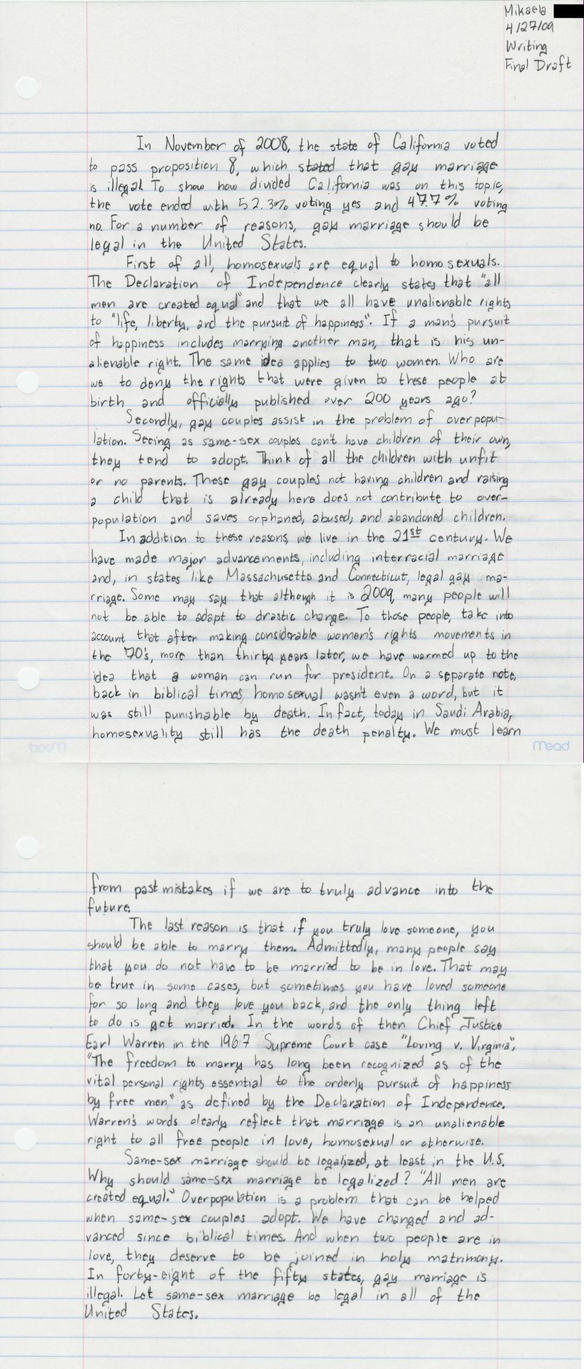 Mikaela
4/27/09
Writing
Final Draft
In November of 2008, the state of California voted
to pass proposition 8, which stated that gay marriage
is illegal. To show how divided California was on this topic,
the vote ended with 52.3% voting yes and 47.7% voting
no. For a number of reasons, gay marriage should be
legal in the United States.
First of all, homosexuals are equal to homo sexuals.
The Declaration of Independence clearly states that "all
men are created equal" and that we all have unalienable rights
to "life, liberty, and the pursuit of happiness". If a man's pursuit
of happiness includes marrying another man, that is his un-
alienable right. The same idea applies to two women. Who are
we to deny the rights that were given to these people at
birth and officially published over 200 years ago?
Secondly, gay couples assist in the problem of overpopu-
lation. Seeing as same-sex couples can't have children of their own,
they tend to adopt. Think of all the children with unfit
or no parents. These gay couples not having children and raising
a child that is already here does not contribute to over-
population and saves orphaned, abused, and abandoned children.
In addition to these reasons, we live in the 21st century. We
have made major advancements, including interracial marriage
and, in states like Massachusetts and Connecticut, legal gay ma-
rriage. Some may say that although it is 2009, many people will
not be able to adapt to drastic change. To those people, take into
account that after making considerable women's rights movements in
the 70's, more than thirty years later, we have warmed up to the
idea that a woman can run for president. On a separate note,
back in biblical times, homosexual wasn't even a word, but it
was still punishable by death. In fact, today in Saudi Arabia,
homosexuality still has the death penalty. We must learn
Mead
from past mistakes if we are to truly advance into the
future.
The last reason is that if you truly love someone, you
should be able to marry them. Admittedly, many people say
that you do not have to be married to be in love. That may
be true in some cases, but sometimes you have loved someone
for so long and they love you back, and the only thing left
to do is get married. In the words of then Chief Justice
Earl Warren in the 1967 Supreme Court case "Loving v. Virginia",
"The freedom to marry has long been recognized as of the
vital personal rights essential to the orderly pursuit of happiness
by free men," as defined by the Declaration of Independence.
Warren's words clearly reflect that marriage is an unalienable
right to all free people in love, homosexual or otherwise.
Same-sex marriage should be legalized, at least in the U.S.
Why should same-sex marriage be legalized? "All men are
created equal." Overpopulation is a problem that can be helped
when same-sex couples adopt. We have changed and ad-
vanced since biblical times. And when two people are in
love, they deserve to be joined in holy matrimony.
In forty-eight of the fifty states, gay marriage is
illegal. Let same-sex marriage be legal in all of the
United States.